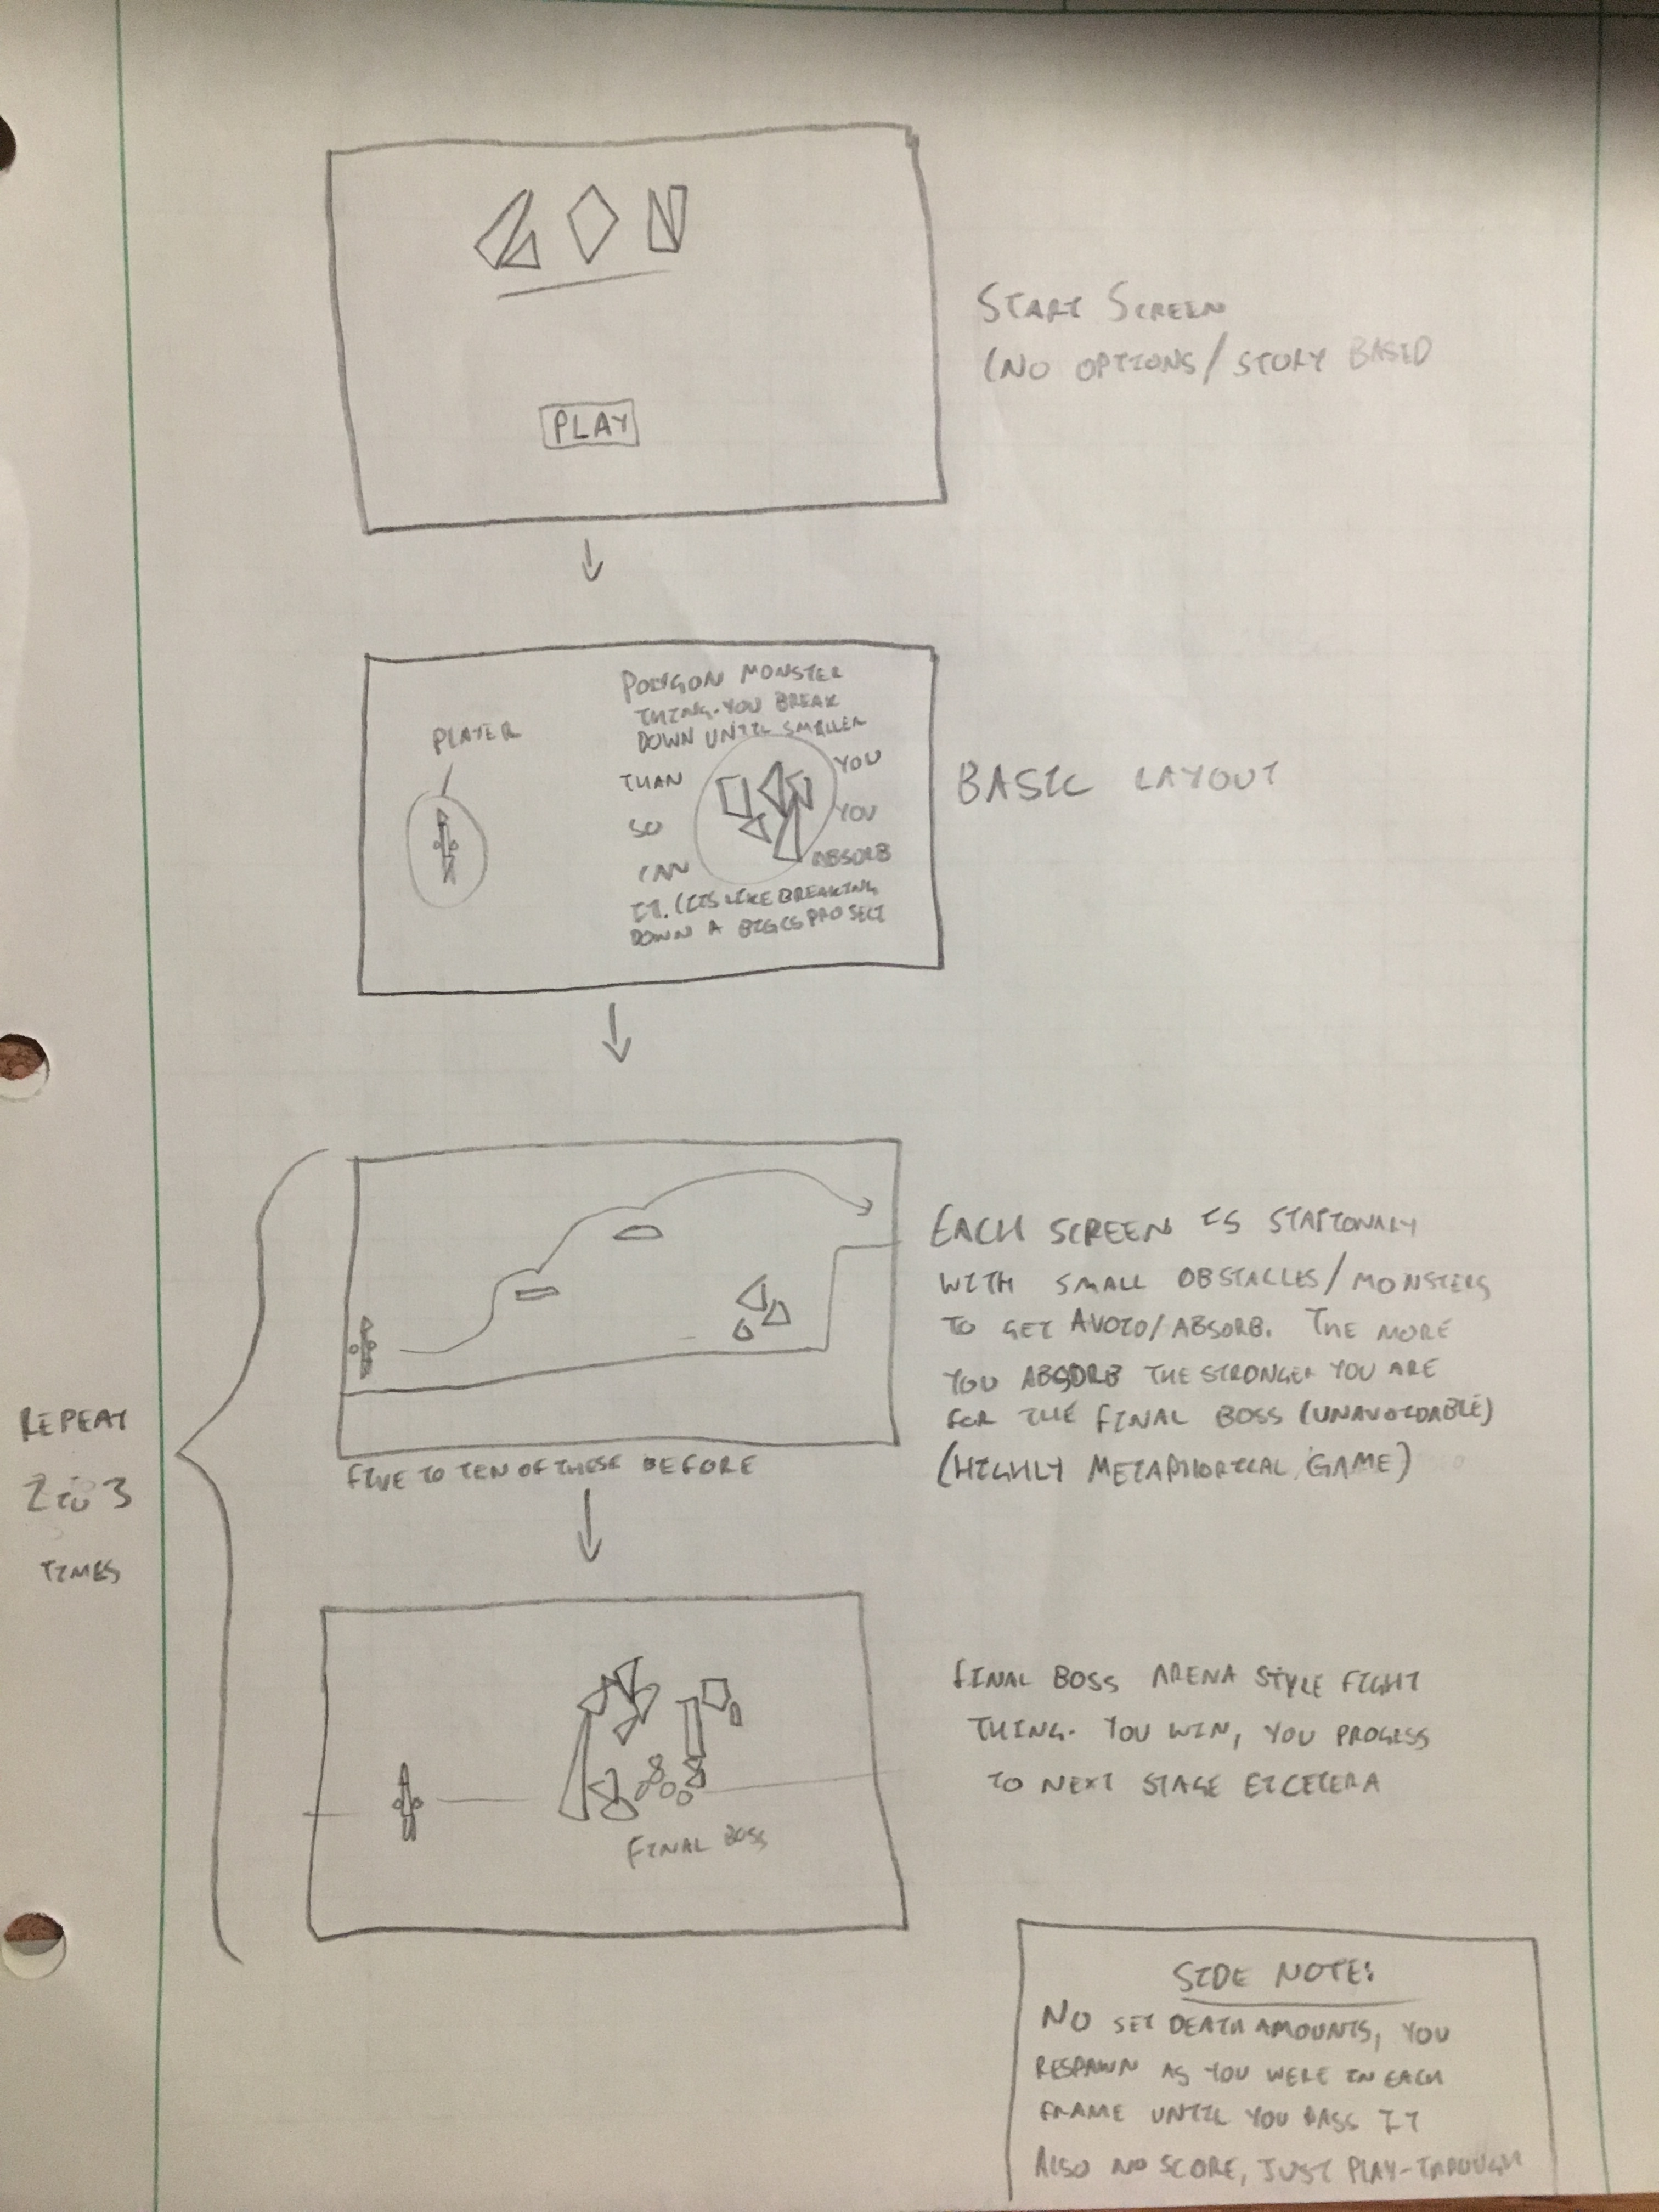 PLAY
START SCREEN
(NO OPTIONS/STORY BASED
PLAYER
POLYGON MONSTER
THING. YOU BREAK
DOWN UNTIL SMALLER
THAN YOU
SO YOU
CAN ABSORB
IT. (ITS LIKE BREAKING
DOWN A BIG CS PROJECT
BASIC LAYOUT
EACH SCREEN IS STATIONARY
WITH SMALL OBSTACLES/MONSTERS
TO GET AVOID/ABSORB. THE MORE
YOU ABSORB THE STRONGER YOU ARE
FOR THE FINAL BOSS (UNAVOIDABLE)
(HIGHLY METAPHORICAL GAME)
FIVE TO TEN OF THESE BEFORE
REPEAT
2 TO 3
TIMES
FINAL BOSS
FINAL BOSS ARENA STYLE FIGHT
THING. YOU WIN, YOU PROGESS
TO NEXT STAGE ETCETERA
SIDE NOTE:
NO SET DEATH AMOUNTS, YOU
RESPAWN AS YOU WERE IN EACH
FRAME UNTIL YOU PASS IT
ALSO NO SCORE, JUST PLAY-THROUGH